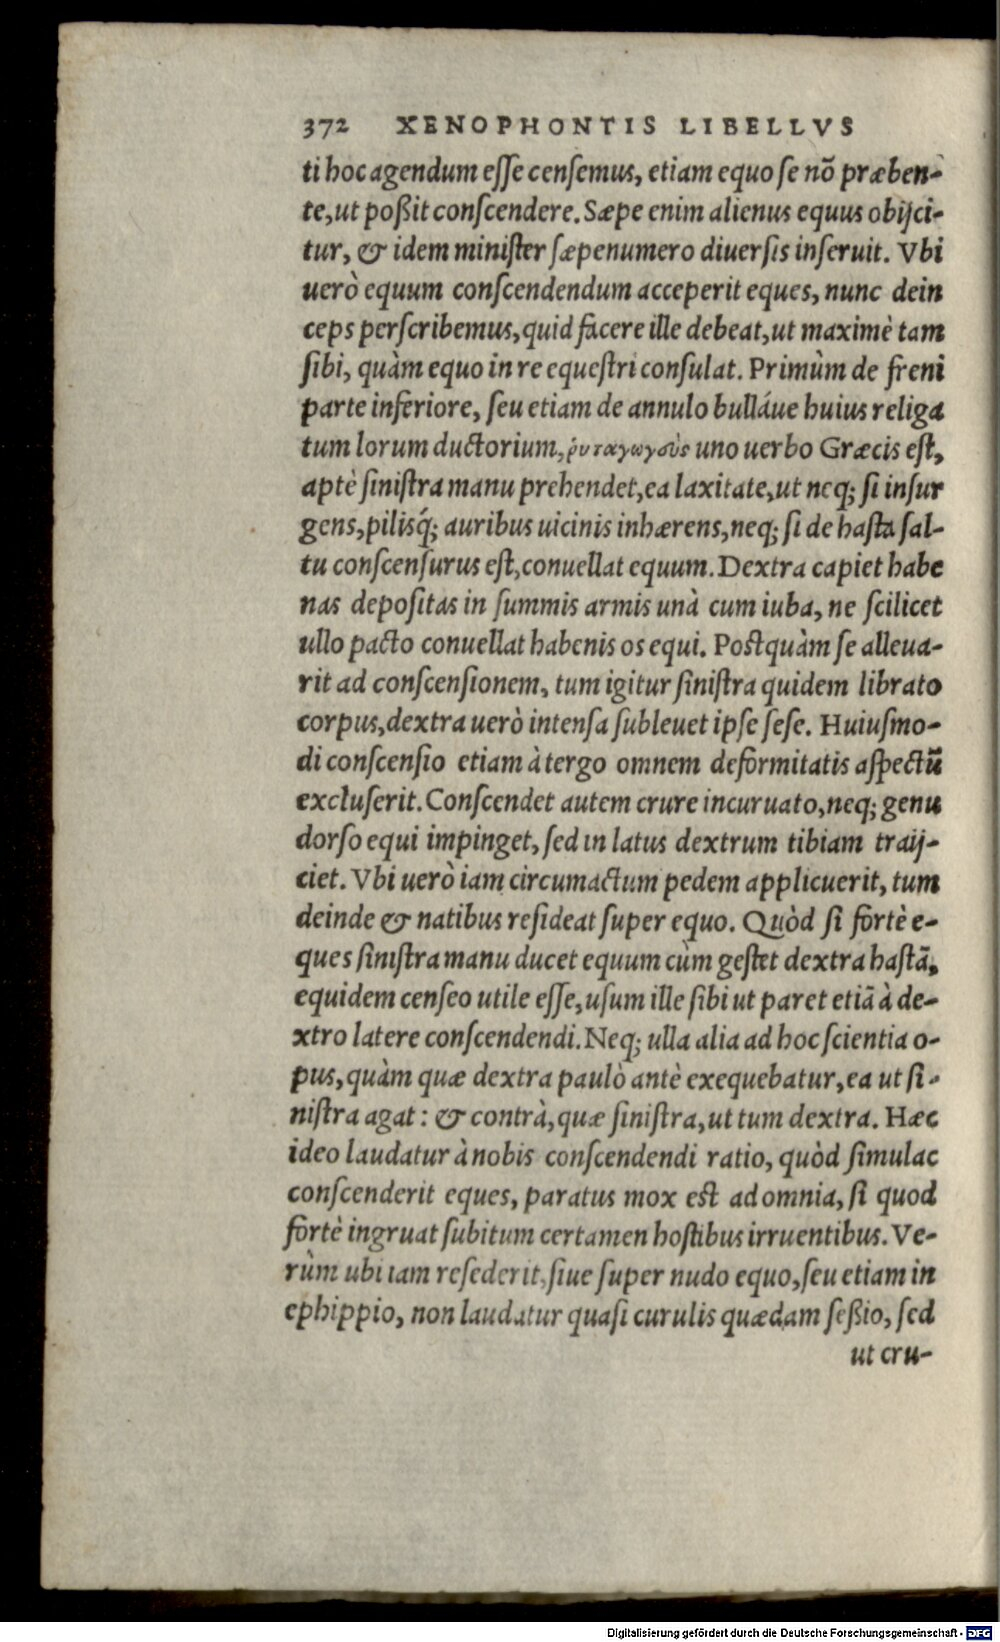 372 XENOPHONTIS LIBELLVS
ti hoc agendum esse censemus, etiam equo se nõ præben-
te, ut poßit conscendere. Sæpe enim alienus equus obijci-
tur, & idem minister sæpenumero diuersis inseruit. Vbi
uerò equum conscendendum acceperit eques, nunc dein
ceps perscribemus, quid facere ille debeat, ut maximè tam
sibi, quàm equo in re equestri consulat. Primùm de freni
parte inferiore, seu etiam de annulo bulláue huius religa
tum lorum ductorium, ῥυταγωγοὺς uno uerbo Græcis est,
aptè sinistra manu prehendet, ea laxitate, ut neq; si insur
gens, pilisq́; auribus uicinis inhærens, neq; si de hasta sal-
tu conscensurus est, conuellat equum. Dextra capiet habe
nas depositas in summis armis unà cum iuba, ne scilicet
ullo pacto conuellat habenis os equi. Postquàm se alleua-
rit ad conscensionem, tum igitur sinistra quidem librato
corpus, dextra uerò intensa subleuet ipse sese. Huiusmo-
di conscensio etiam à tergo omnem deformitatis aspectũ
excluserit. Conscendet autem crure incuruato, neq; genu
dorso equi impinget, sed in latus dextrum tibiam traij-
ciet. Vbi uerò iam circumactum pedem applicuerit, tum
deinde & natibus resideat super equo. Quòd si fortè e-
ques sinistra manu ducet equum cùm gestet dextra hastã,
equidem censeo utile esse, usum ille sibi ut paret etiã à de-
xtro latere conscendendi. Neq; ulla alia ad hoc scientia o-
pus, quàm quæ dextra paulò antè exequebatur, ea ut si-
nistra agat: & contrà, quæ sinistra, ut tum dextra. Hæc
ideo laudatur à nobis conscendendi ratio, quòd simulac
conscenderit eques, paratus mox est ad omnia, si quod
fortè ingruat subitum certamen hostibus irruentibus. Ve-
rùm ubi iam resederit, siue super nudo equo, seu etiam in
ephippio, non laudatur quasi curulis quædam seßio, sed
ut cru-
Digitalisierung gefördert durch die Deutsche Forschungsgemeinschaft - DFG